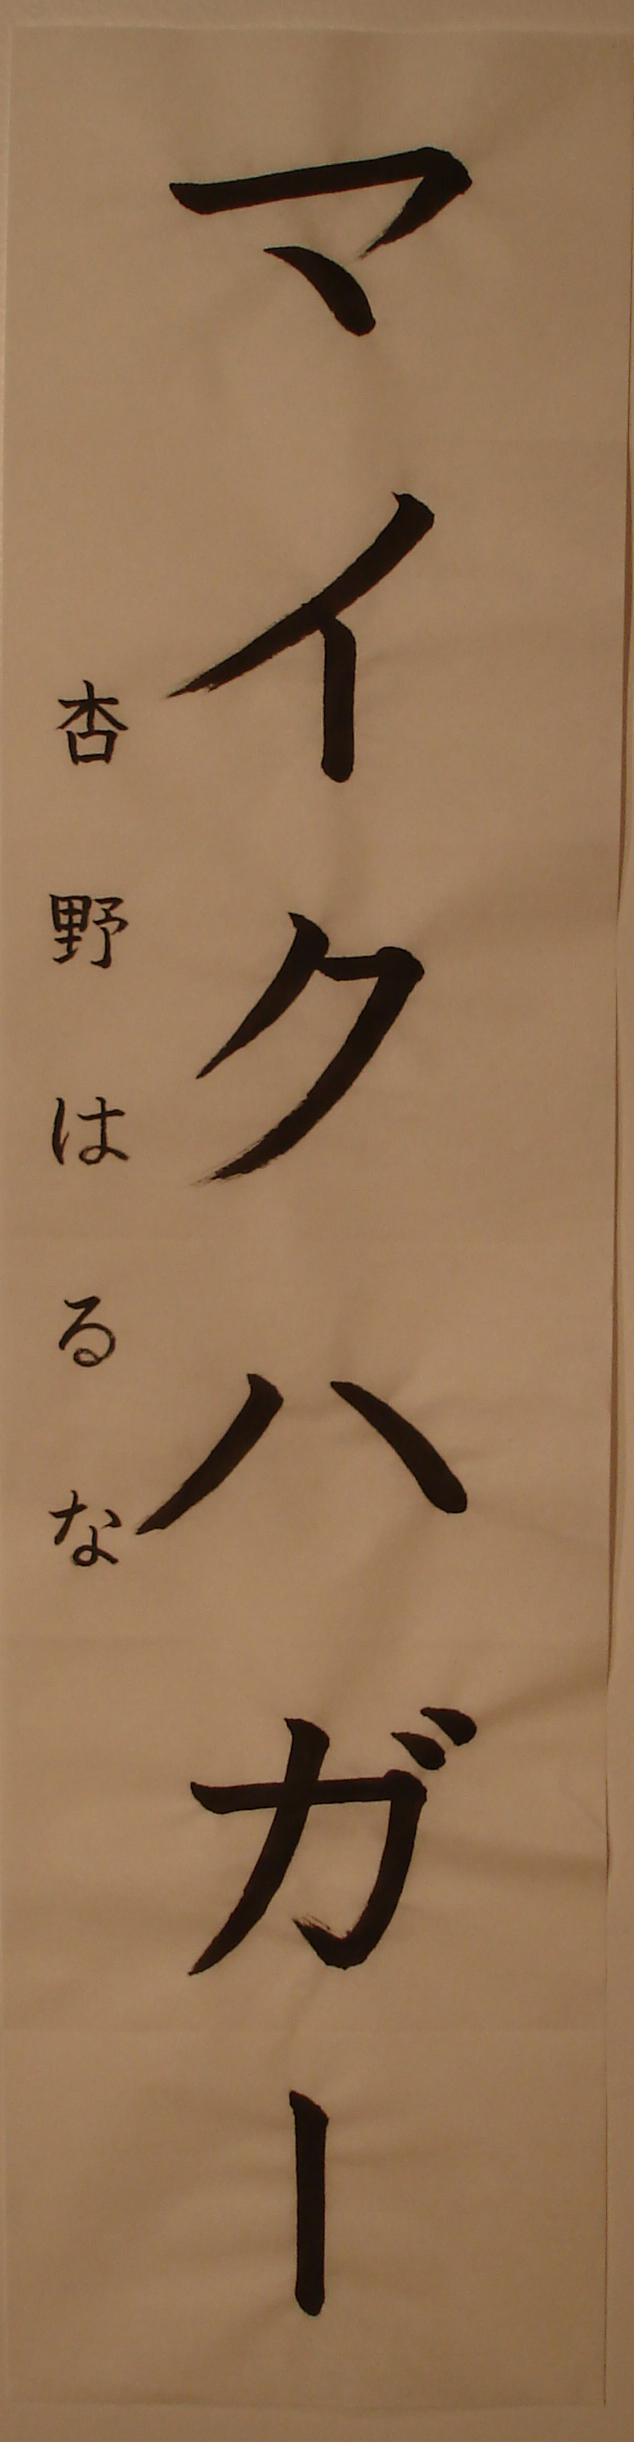 マイクハガー
杏野はるな